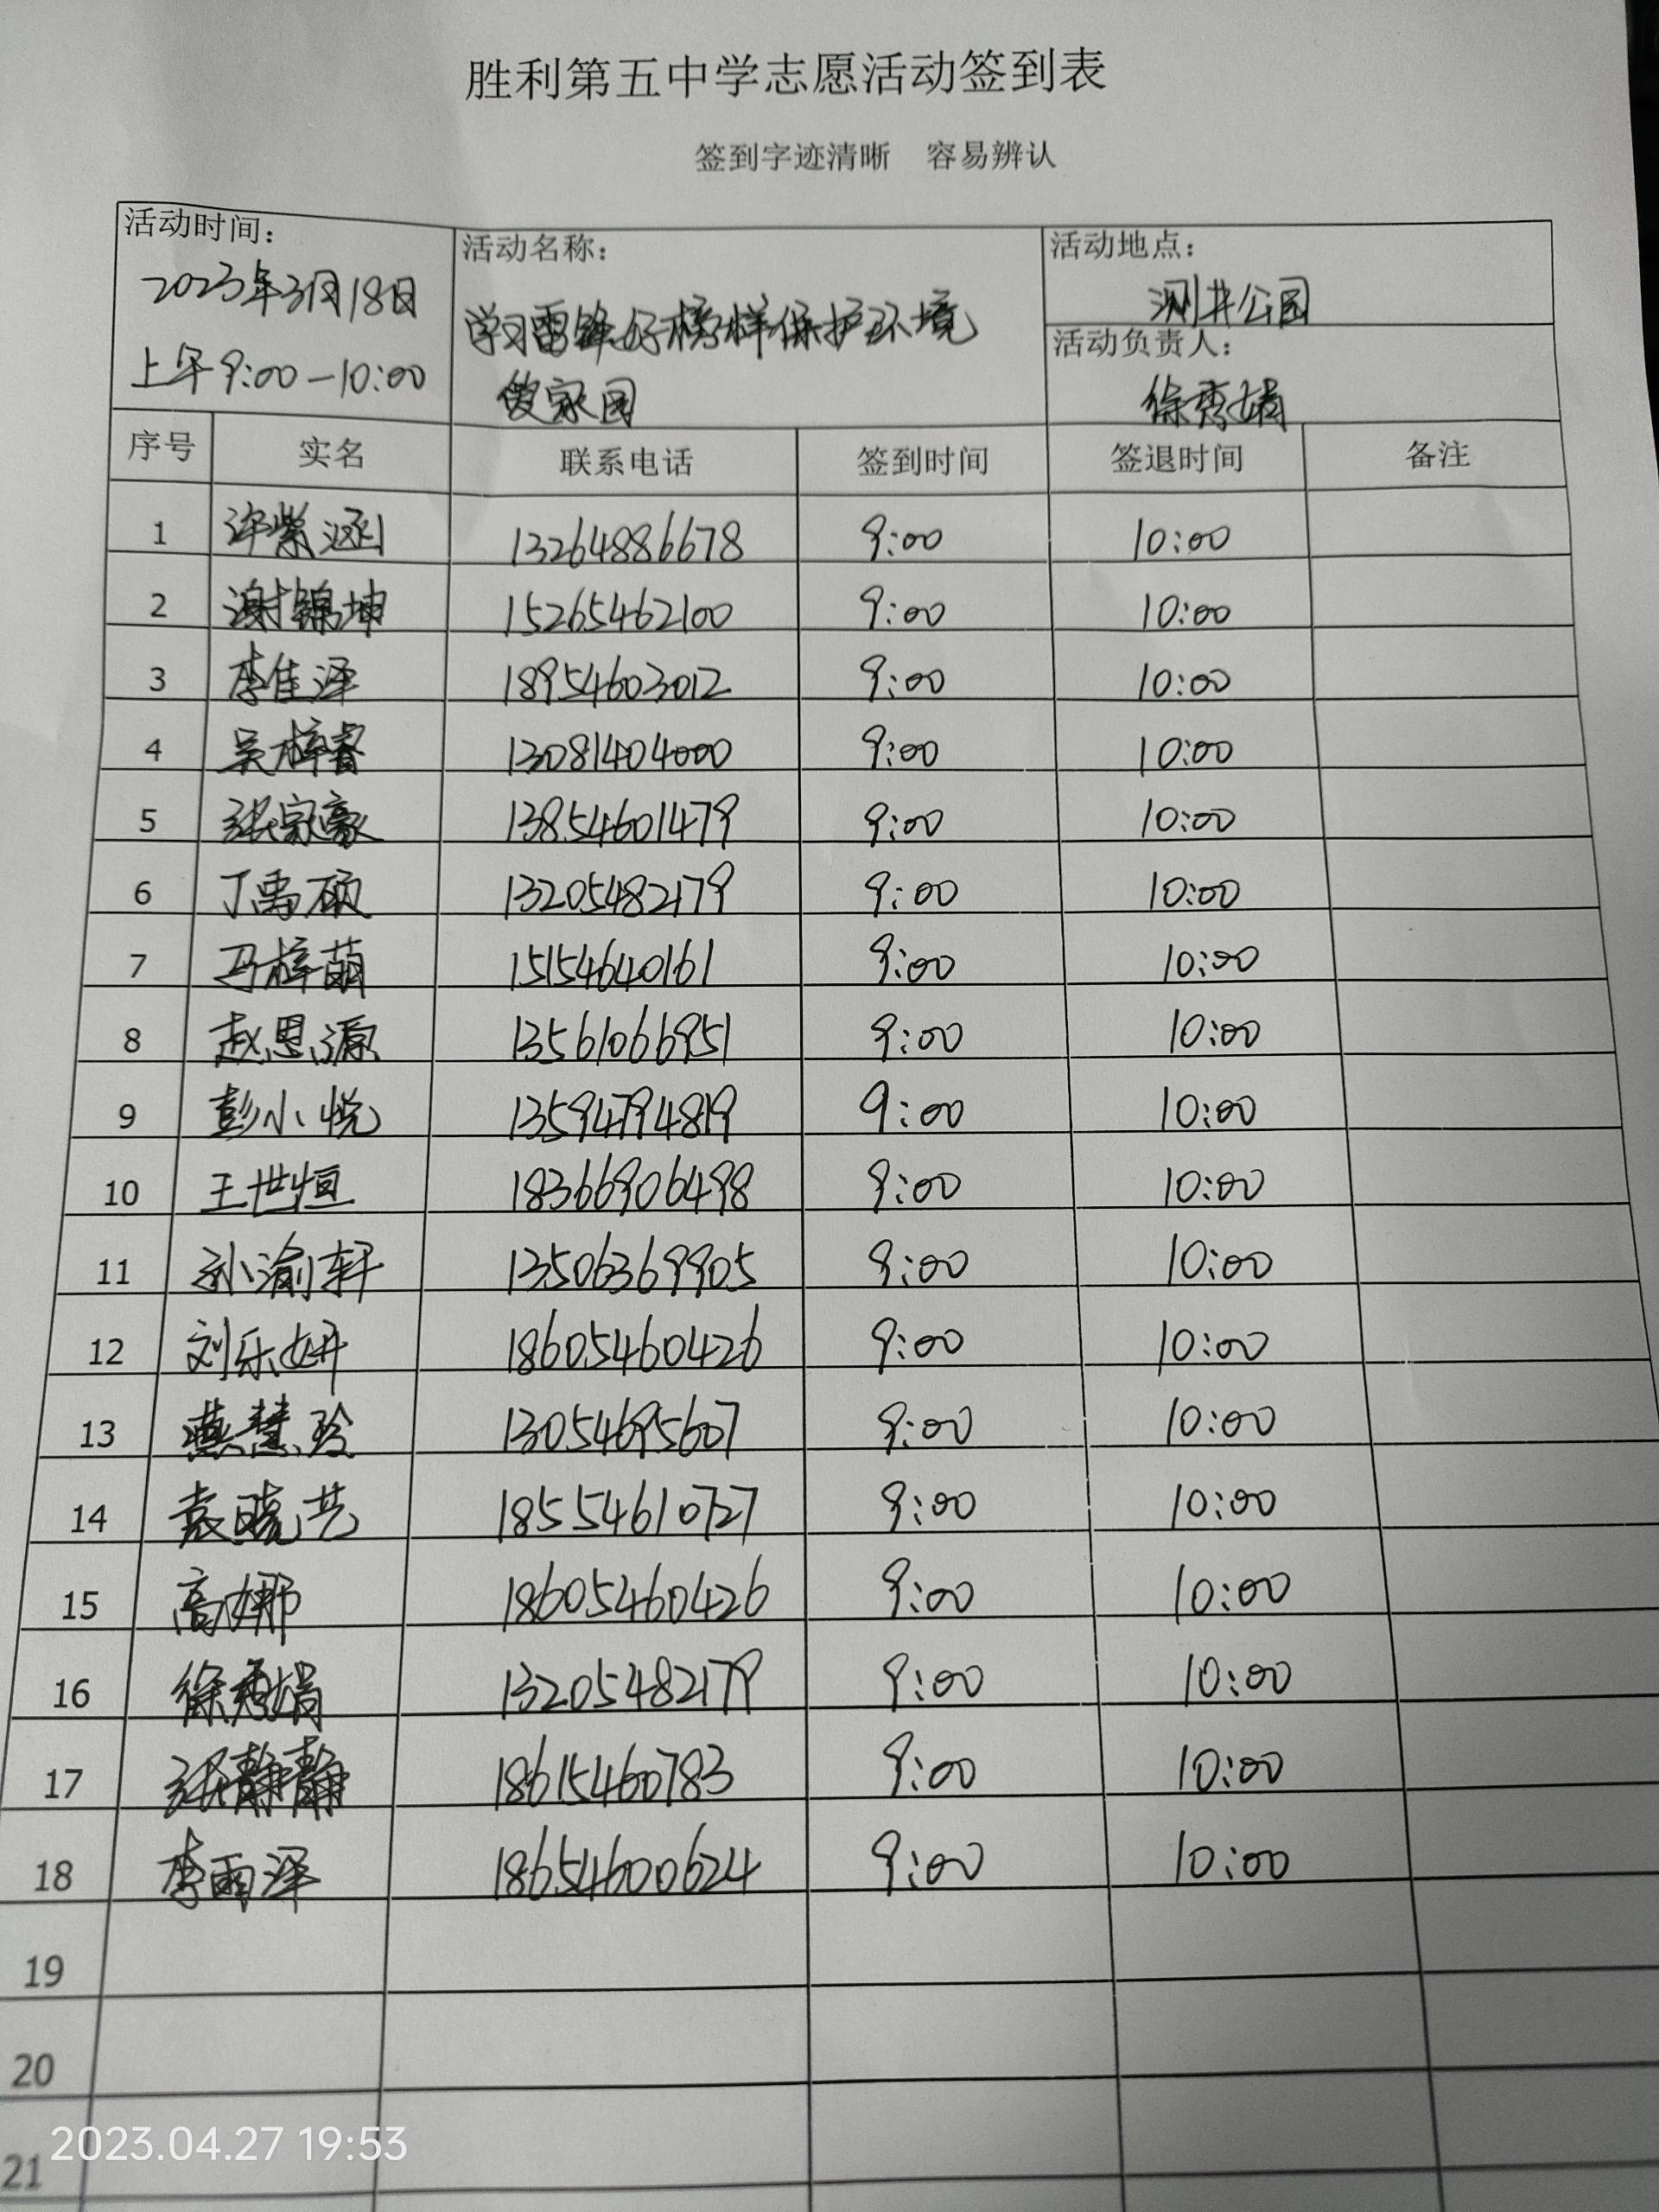 胜利第五中学志愿活动签到表
签到字迹清晰 容易辨认
活动时间：
2023年3月18日
上午9:00-10:00
活动名称：
学习雷锋好榜样保护环境
爱家园
活动地点：
测井公园
活动负责人：
徐秀娟
序号 实名 联系电话 签到时间 签退时间 备注
1 许紫涵 13264886678 9:00 10:00
2 谢锦坤 15265462100 9:00 10:00
3 李佳泽 18954603012 9:00 10:00
4 吴梓睿 13081404000 9:00 10:00
5 张家豪 13854601479 9:00 10:00
6 丁禹硕 13205482179 9:00 10:00
7 马梓萌 15154640161 9:00 10:00
8 赵思源 13561066951 9:00 10:00
9 彭小悦 13594794819 9:00 10:00
10 王世恒 18366906498 9:00 10:00
11 孙渝轩 13506369905 9:00 10:00
12 刘乐妍 18605460426 9:00 10:00
13 燕慧玲 13054695607 9:00 10:00
14 袁晓艺 18554610727 9:00 10:00
15 高娜 18605460426 9:00 10:00
16 徐秀娟 13205482179 9:00 10:00
17 张静静 18615460783 9:00 10:00
18 李雨泽 18654600624 9:00 10:00
19
20
21
2023.04.27 19:53